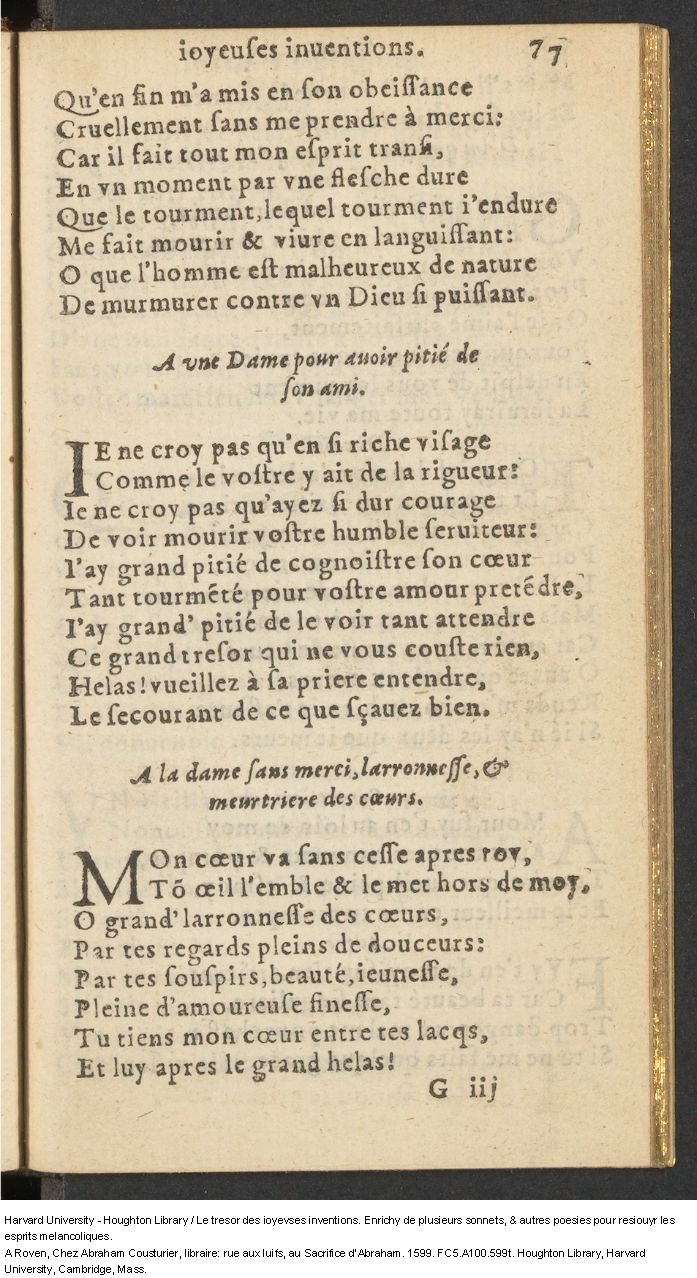 ioyeuſes inuentions. 77
Qu'en fin m'a mis en ſon obeiſſance
Cruellement ſans me prendre à merci:
Car il fait tout mon eſprit tranſi,
En vn moment par vne fleſche dure
Que le tourment, lequel tourment i'endure
Me fait mourir & viure en languiſſant:
O que l'homme eſt malheureux de nature
De murmurer contre vn Dieu ſi puiſſant.
A vne Dame pour auoir pitié de
ſon ami.
IE ne croy pas qu'en ſi riche viſage
Comme le voſtre y ait de la rigueur:
Ie ne croy pas qu'ayez ſi dur courage
De voir mourir voſtre humble ſeruiteur:
I'ay grand pitié de cognoiſtre ſon cœur
Tant tourmēté pour voſtre amour pretēdre,
I'ay grand' pitié de le voir tant attendre
Ce grand treſor qui ne vous couſte rien,
Helas! vueillez à ſa priere entendre,
Le ſecourant de ce que ſçauez bien.
A la dame ſans merci, larronneſſe, &
meurtriere des cœurs.
MOn cœur va ſans ceſſe apres toy,
Tō œil l'emble & le met hors de moy,
O grand' larronneſſe des cœurs,
Par tes regards pleins de douceurs:
Par tes ſouſpirs, beauté, ieuneſſe,
Pleine d'amoureuſe fineſſe,
Tu tiens mon cœur entre tes lacqs,
Et luy apres le grand helas!
G iij
Harvard University - Houghton Library / Le tresor des ioyevses inventions. Enrichy de plusieurs sonnets, & autres poesies pour resiouyr les
esprits melancoliques.
A Roven, Chez Abraham Cousturier, libraire: rue aux Iuifs, au Sacrifice d'Abraham. 1599. FC5.A100.599t. Houghton Library, Harvard
University, Cambridge, Mass.